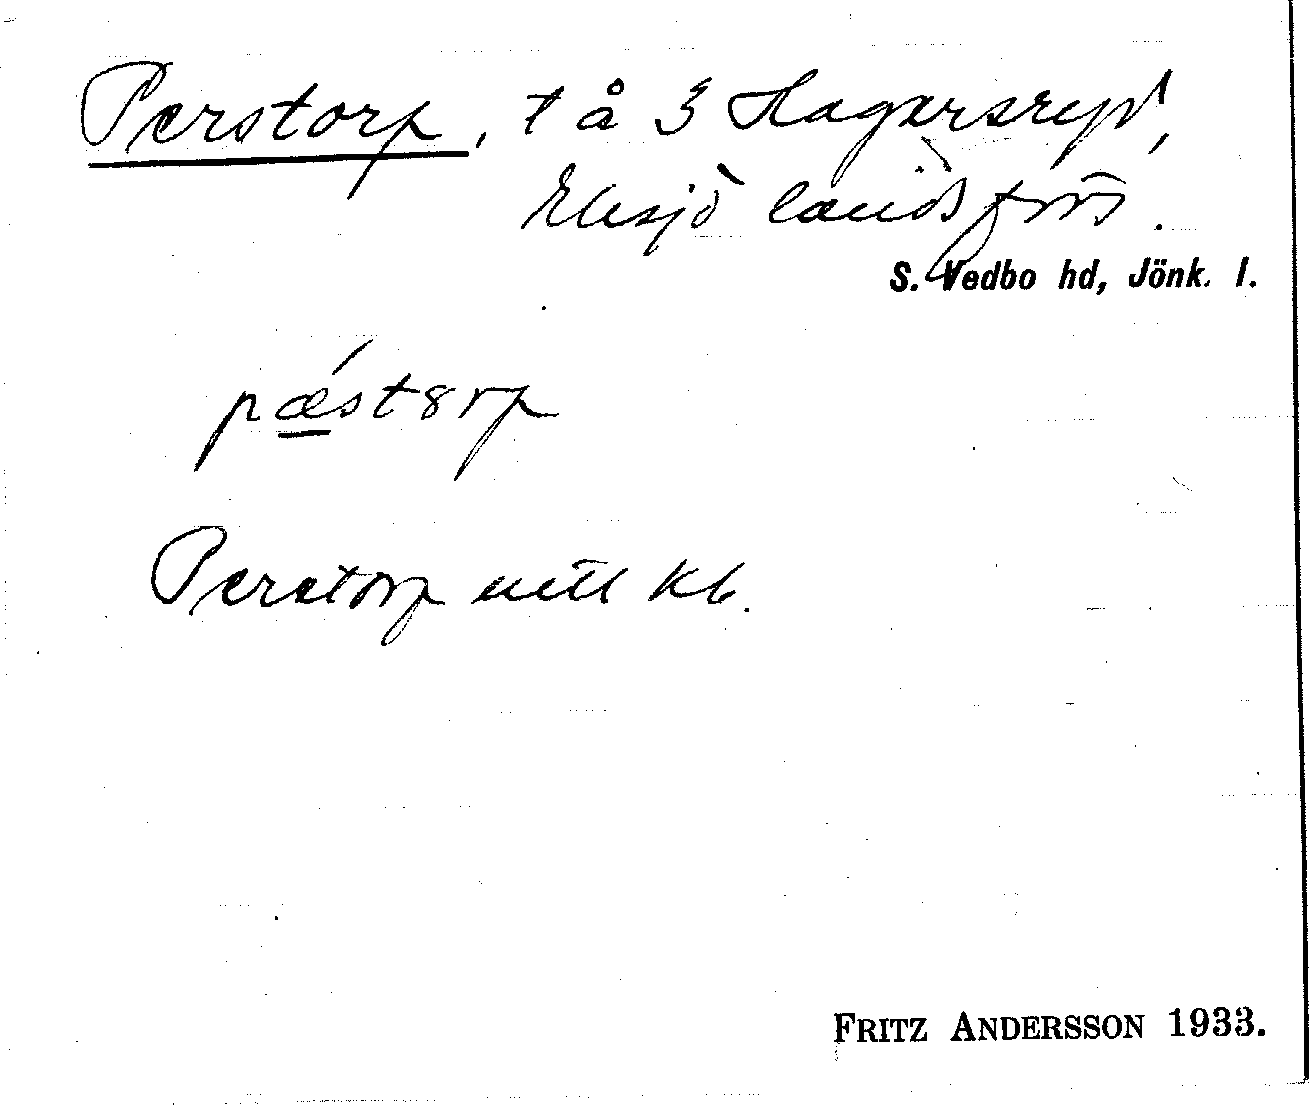 Perstorp, t å 3 Hagersryd,
Eksjö landsförs.
S. Vedbo hd, Jönk. l.
pǽstȣrp
Perstorp
FRITZ ANDERSSON 1933.